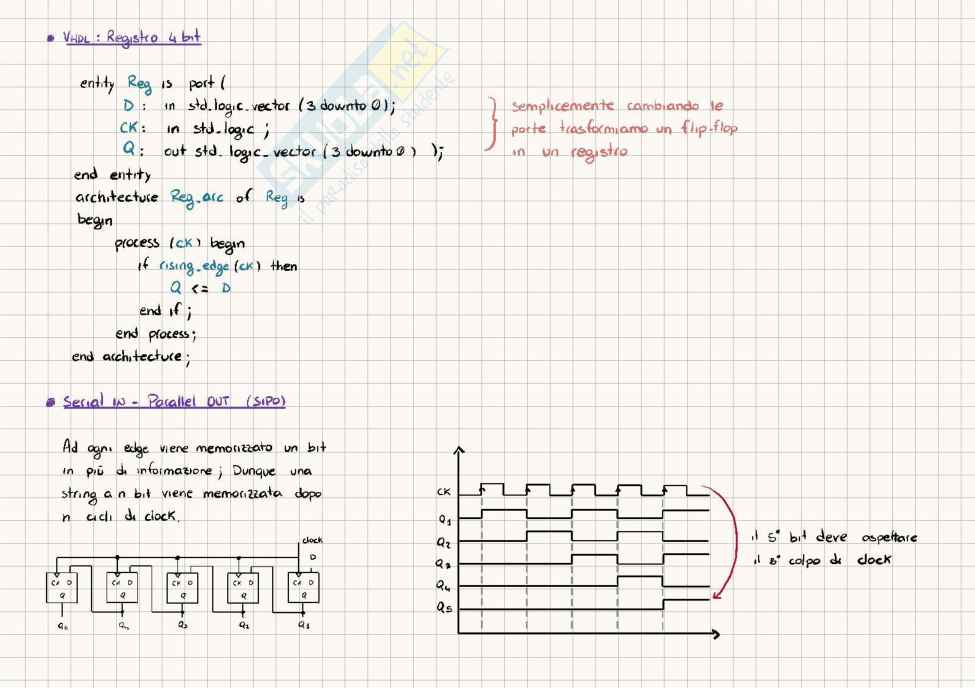 • VHDL : Registro 4 bit
entity Reg is port (
D : in std_logic_vector (3 downto 0);
CK : in std_logic ;
Q : out std_logic_vector (3 downto 0) );
end entity
architecture Reg_arc of Reg is
begin
process (CK) begin
if rising_edge (CK) then
Q <= D
end if ;
end process;
end architecture;
semplicemente cambiando le
porte trasformiamo un flip-flop
in un registro
SKUOLA.net
il paradiso dello studente
• Serial IN - Parallel OUT (SIPO)
Ad ogni edge viene memorizzato un bit
in più di informazione ; Dunque una
string a n bit viene memorizzata dopo
n cicli di clock.
clock
D
CK D CK D CK D CK D CK D
Q Q Q Q Q
Q3 Q2 Q1
CK
Q1
Q2
Q3
Q4
Q5
il 5° bit deve aspettare
il 5° colpo di clock